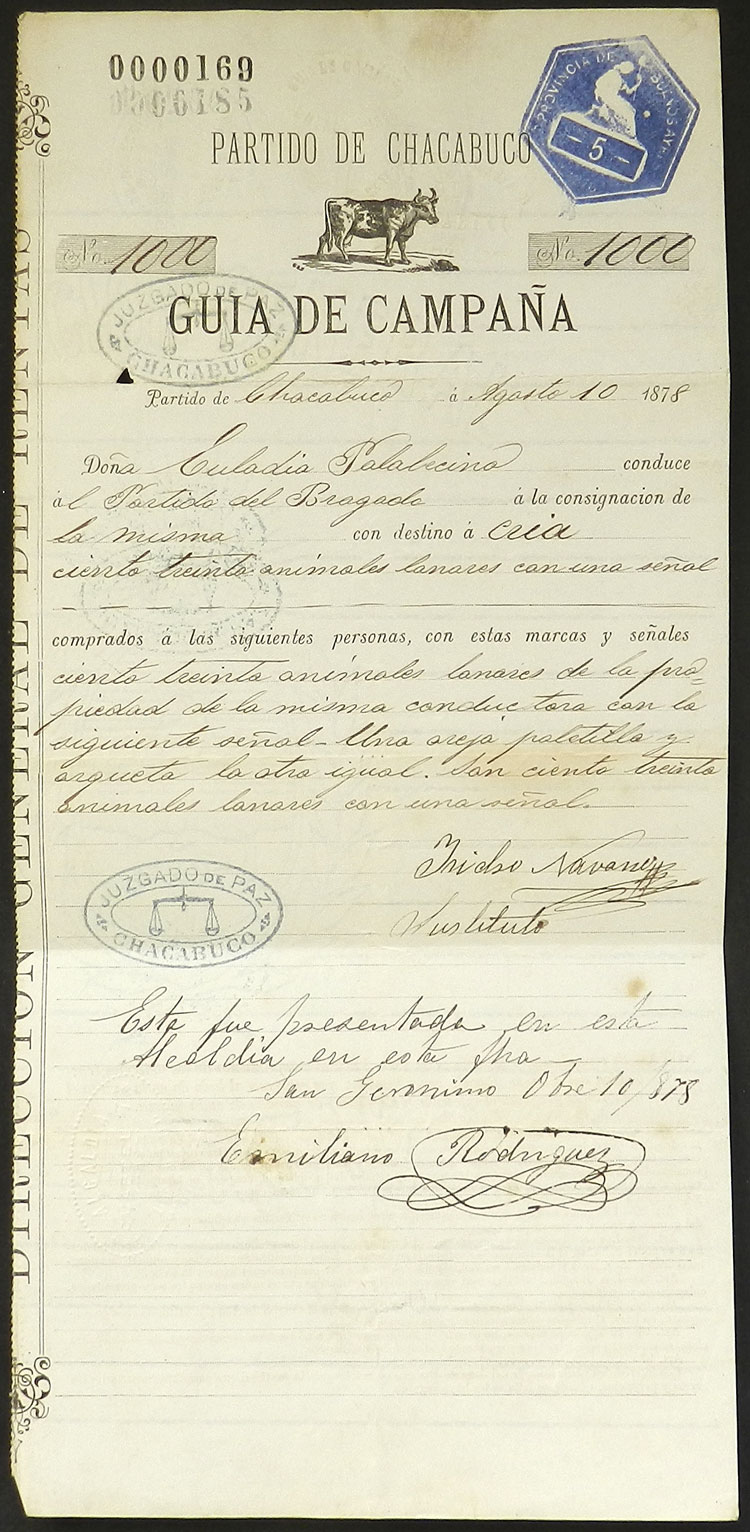 0000169
0000185
PROVINCIA DE BUENOS AYRES
5
PARTIDO DE CHACABUCO
No. 1000
No. 1000
JUZGADO DE PAZ
CHACABUCO
GUIA DE CAMPAÑA
Partido de Chacabuco á Agosto 10 1878
Doña Euladia Palabecino conduce
al Partido del Bragado á la consignacion de
La misma con destino á cria
ciento treinta animales lanares con una señal
comprados á las siguientes personas, con estas marcas y señales
ciento treinta animales lanares de la pro=
piedad de la misma conductora con la
siguiente señal - Una oreja paletilla y
orqueta la otra igual. Son ciento treinta
animales lanares con una señal.
Isidro
Sustituto
JUZGADO DE PAZ
CHACABUCO
Esta fue presentada en esta
Alcaldia en esta fha
San Geronimo Obre 10/878
Emiliano Rodriguez
DIRECCION GENERAL DE RENTAS